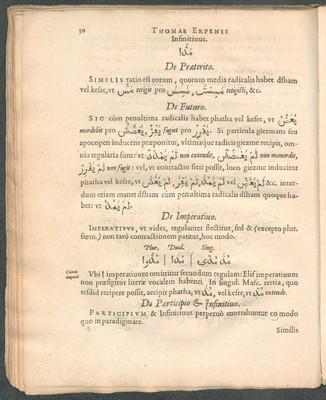 50 THOMAE ERPENII
Infinitiuus.
مَدًّا
De Præterito.
SIMILIS ratio est eorum, quorum media radicalis habet dsham
vel kesre, vt مَسَّ tetigit pro مَسِسَ, مَسِسْتَ tetigisti, &c.
De Futuro.
SIC cùm penultima radicalis habet phatha vel kesre, vt يَعَضُّ
mordebit pro يَعْضَضُ, يَفِرُّ fugiet pro يَفْرِرُ. Si particula giezmans seu
apocopen inducens præponitur, vltimaque radicalis giezma recipit, om-
nia regularia sunt: vt لَمْ يَمْدُدْ non extendet, لَمْ يَعْضَضْ non momordit,
لَمْ يَفْرِرْ non fugit: vel, vt contractio fieri possit, loco giezma inducitur
phatha vel kesre, vt لَمْ يَعَضَّ vel لَمْ يَمُدَّ, لَمْ يَفِرَّ &c. inter-
dum etiam manet dsham cùm penultima radicalis dsham quoque ha-
bet: vt لَمْ يَمُدُّ.
De Imperatiuo.
IMPERATIVVS, vt vides, regulariter flectitur, sed & (excepto plur.
fœm.) non rarò contractionem patitur, hoc modo.
Plur. Dual. Sing.
مُدَّ مُدِّي | مُدَّا | مُدُّوا
Vbi ! imperatiuum omittitur secundum regulam: Elif imperatiuum
non præfigitur literæ vocalem habenti. In singul. Masc. tertia, quo
tesdid recipere possit, accipit phatha, vt مُدَّ, vel kesre, vt مُدِّ extende.
De Participio & Infinitiuo.
PARTICIPIVM & Infinitiuus perpetuò contrahuntur eo modo
quo in paradigmate.
Similis